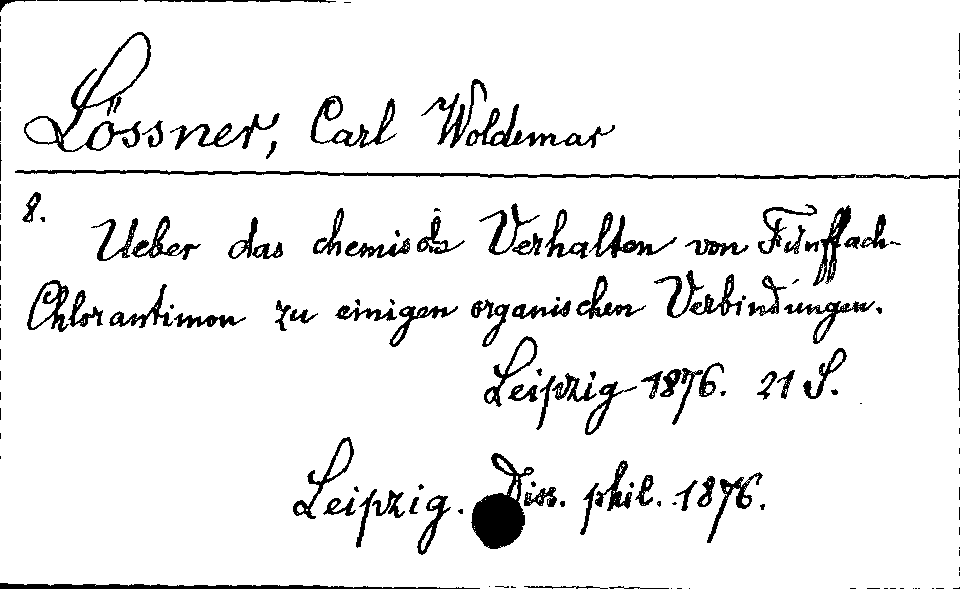 Lössner, Carl Woldemar
8.
Ueber das chemische Verhalten von Fünffach-
Chlorantimon zu einigen organischen Verbindungen.
Leipzig 1876. 21 S.
Leipzig. Diss. phil. 1876.